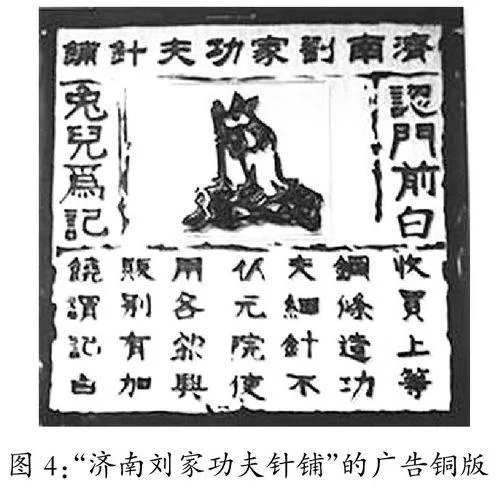 濟南劉家功夫針鋪
認門前白
兔兒爲記
收買上等
鋼條造功
夫細針不
元院使
用各欲興
販別有加
饒謂記白
图 4:“济南刘家功夫针铺”的广告铜版